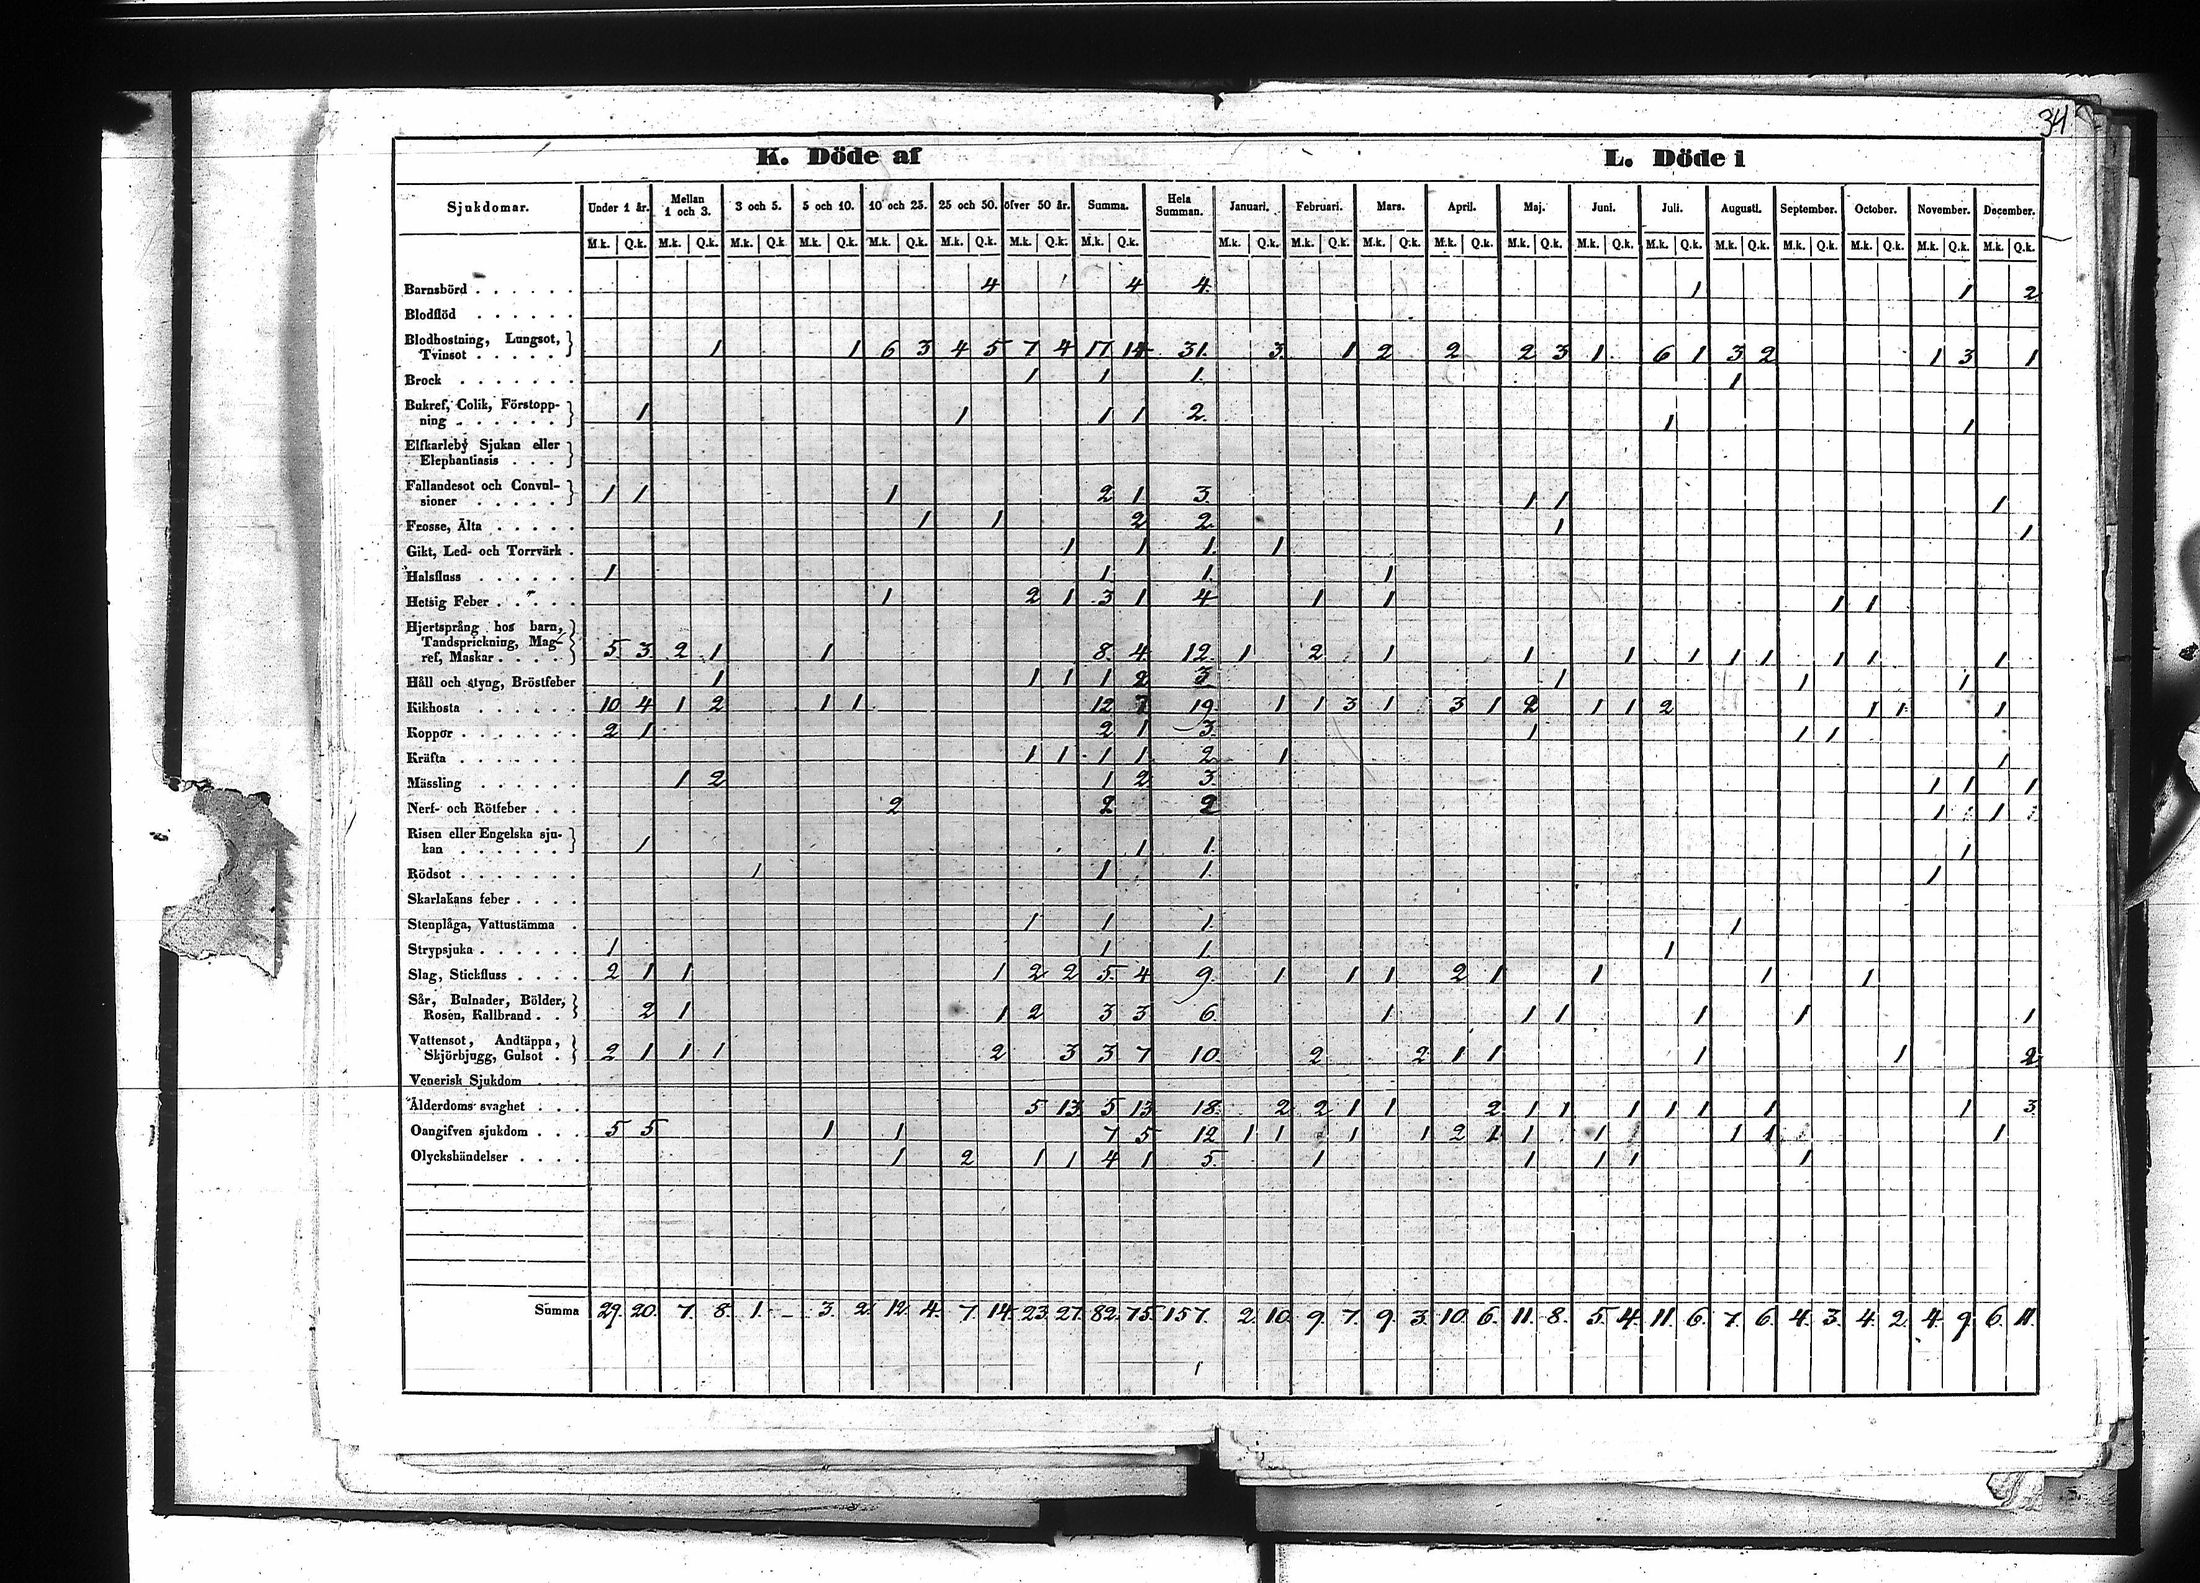 34
K. Döde af L. Döde i
Sjukdomar. Under 1 år. Mellan 1 och 3. 3 och 5. 5 och 10. 10 och 25. 25 och 50. öfver 50 år. Summa. Hela Summan. Januari. Februari. Mars. April. Maj. Juni. Juli. Augusti. September. October. November. December.
M.k. Q.k. M.k. Q.k. M.k. Q.k. M.k. Q.k. M.k. Q.k. M.k. Q.k. M.k. Q.k. M.k. Q.k. M.k. Q.k. M.k. Q.k. M.k. Q.k. M.k. Q.k. M.k. Q.k. M.k. Q.k. M.k. Q.k. M.k. Q.k. M.k. Q.k. M.k. Q.k. M.k. Q.k. M.k. Q.k.
Barnsbörd 4 4 4. 1 1 2
Blodflöd
Blodhostning, Lungsot,
Tvinsot 1 1 6 3 4 5 7 4 17 14 31. 3 1 2 2 2 3 1 6 1 3 2 1 3 1
Brock 1 1 1. 1
Bukref, Colik, Förstopp-
ning 1 1 1 1 2. 1 1
Elfkarleby Sjukan eller
Elephantiasis
Fallandesot och Convul-
sioner 1 1 1 2 1 3. 1 1 1
Frosse, Älta 1 1 2 2. 1 1
Gikt, Led- och Torrvärk 1 1 1. 1
Halsfluss 1 1 1. 1
Hetsig Feber 1 2 1 3 1 4 1 1 1 1
Hjertsprång hos barn,
Tandsprickning, Mag-
ref, Maskar 5 3 2 1 1 8 4 12. 1 2 1 1 1 1 1 1 1 1 1
Håll och styng, Bröstfeber 1 1 1 1 2 3 1 1 1
Kikhosta 10 4 1 2 1 1 12 7 19. 1 1 3 1 3 1 2 1 1 2 1 1 1
Koppor 2 1 2 1 3. 1 1 1
Kräfta 1 1 1 1 2. 1 1
Mässling 1 2 1 2 3. 1 1 1
Nerf- och Rötfeber 2 2 2 1 1
Risen eller Engelska sju-
kan 1 1 1. 1
Rödsot 1 1 1. 1
Skarlakans feber
Stenplåga, Vattustämma 1 1 1. 1
Strypsjuka 1 1 1. 1
Slag, Stickfluss 2 1 1 1 2 2 5 4 9. 1 1 1 2 1 1 1 1
Sår, Bulnader, Bölder,
Rosen, Kallbrand 2 1 1 2 3 3 6. 1 1 1 1 1 1
Vattensot, Andtäppa,
Skjörbjugg, Gulsot 2 1 1 1 2 3 3 7 10. 2 2 1 1 1 1 2
Venerisk Sjukdom
Ålderdoms svaghet 5 13 5 13 18. 2 2 1 1 2 1 1 1 1 1 1 1 3
Oangifven sjukdom 5 5 1 1 7 5 12 1 1 1 1 2 1 1 1 1 1 1
Olyckshändelser 1 2 1 1 4 1 5. 1 1 1 1 1
Summa 29. 20. 7. 8. 1. - 3. 2 12. 4. 7. 14. 23. 27. 82. 75. 157. 2. 10. 9. 7. 9. 3. 10. 6. 11. 8. 5. 4. 11. 6. 7. 6. 4. 3. 4. 2. 4. 9. 6. 11.